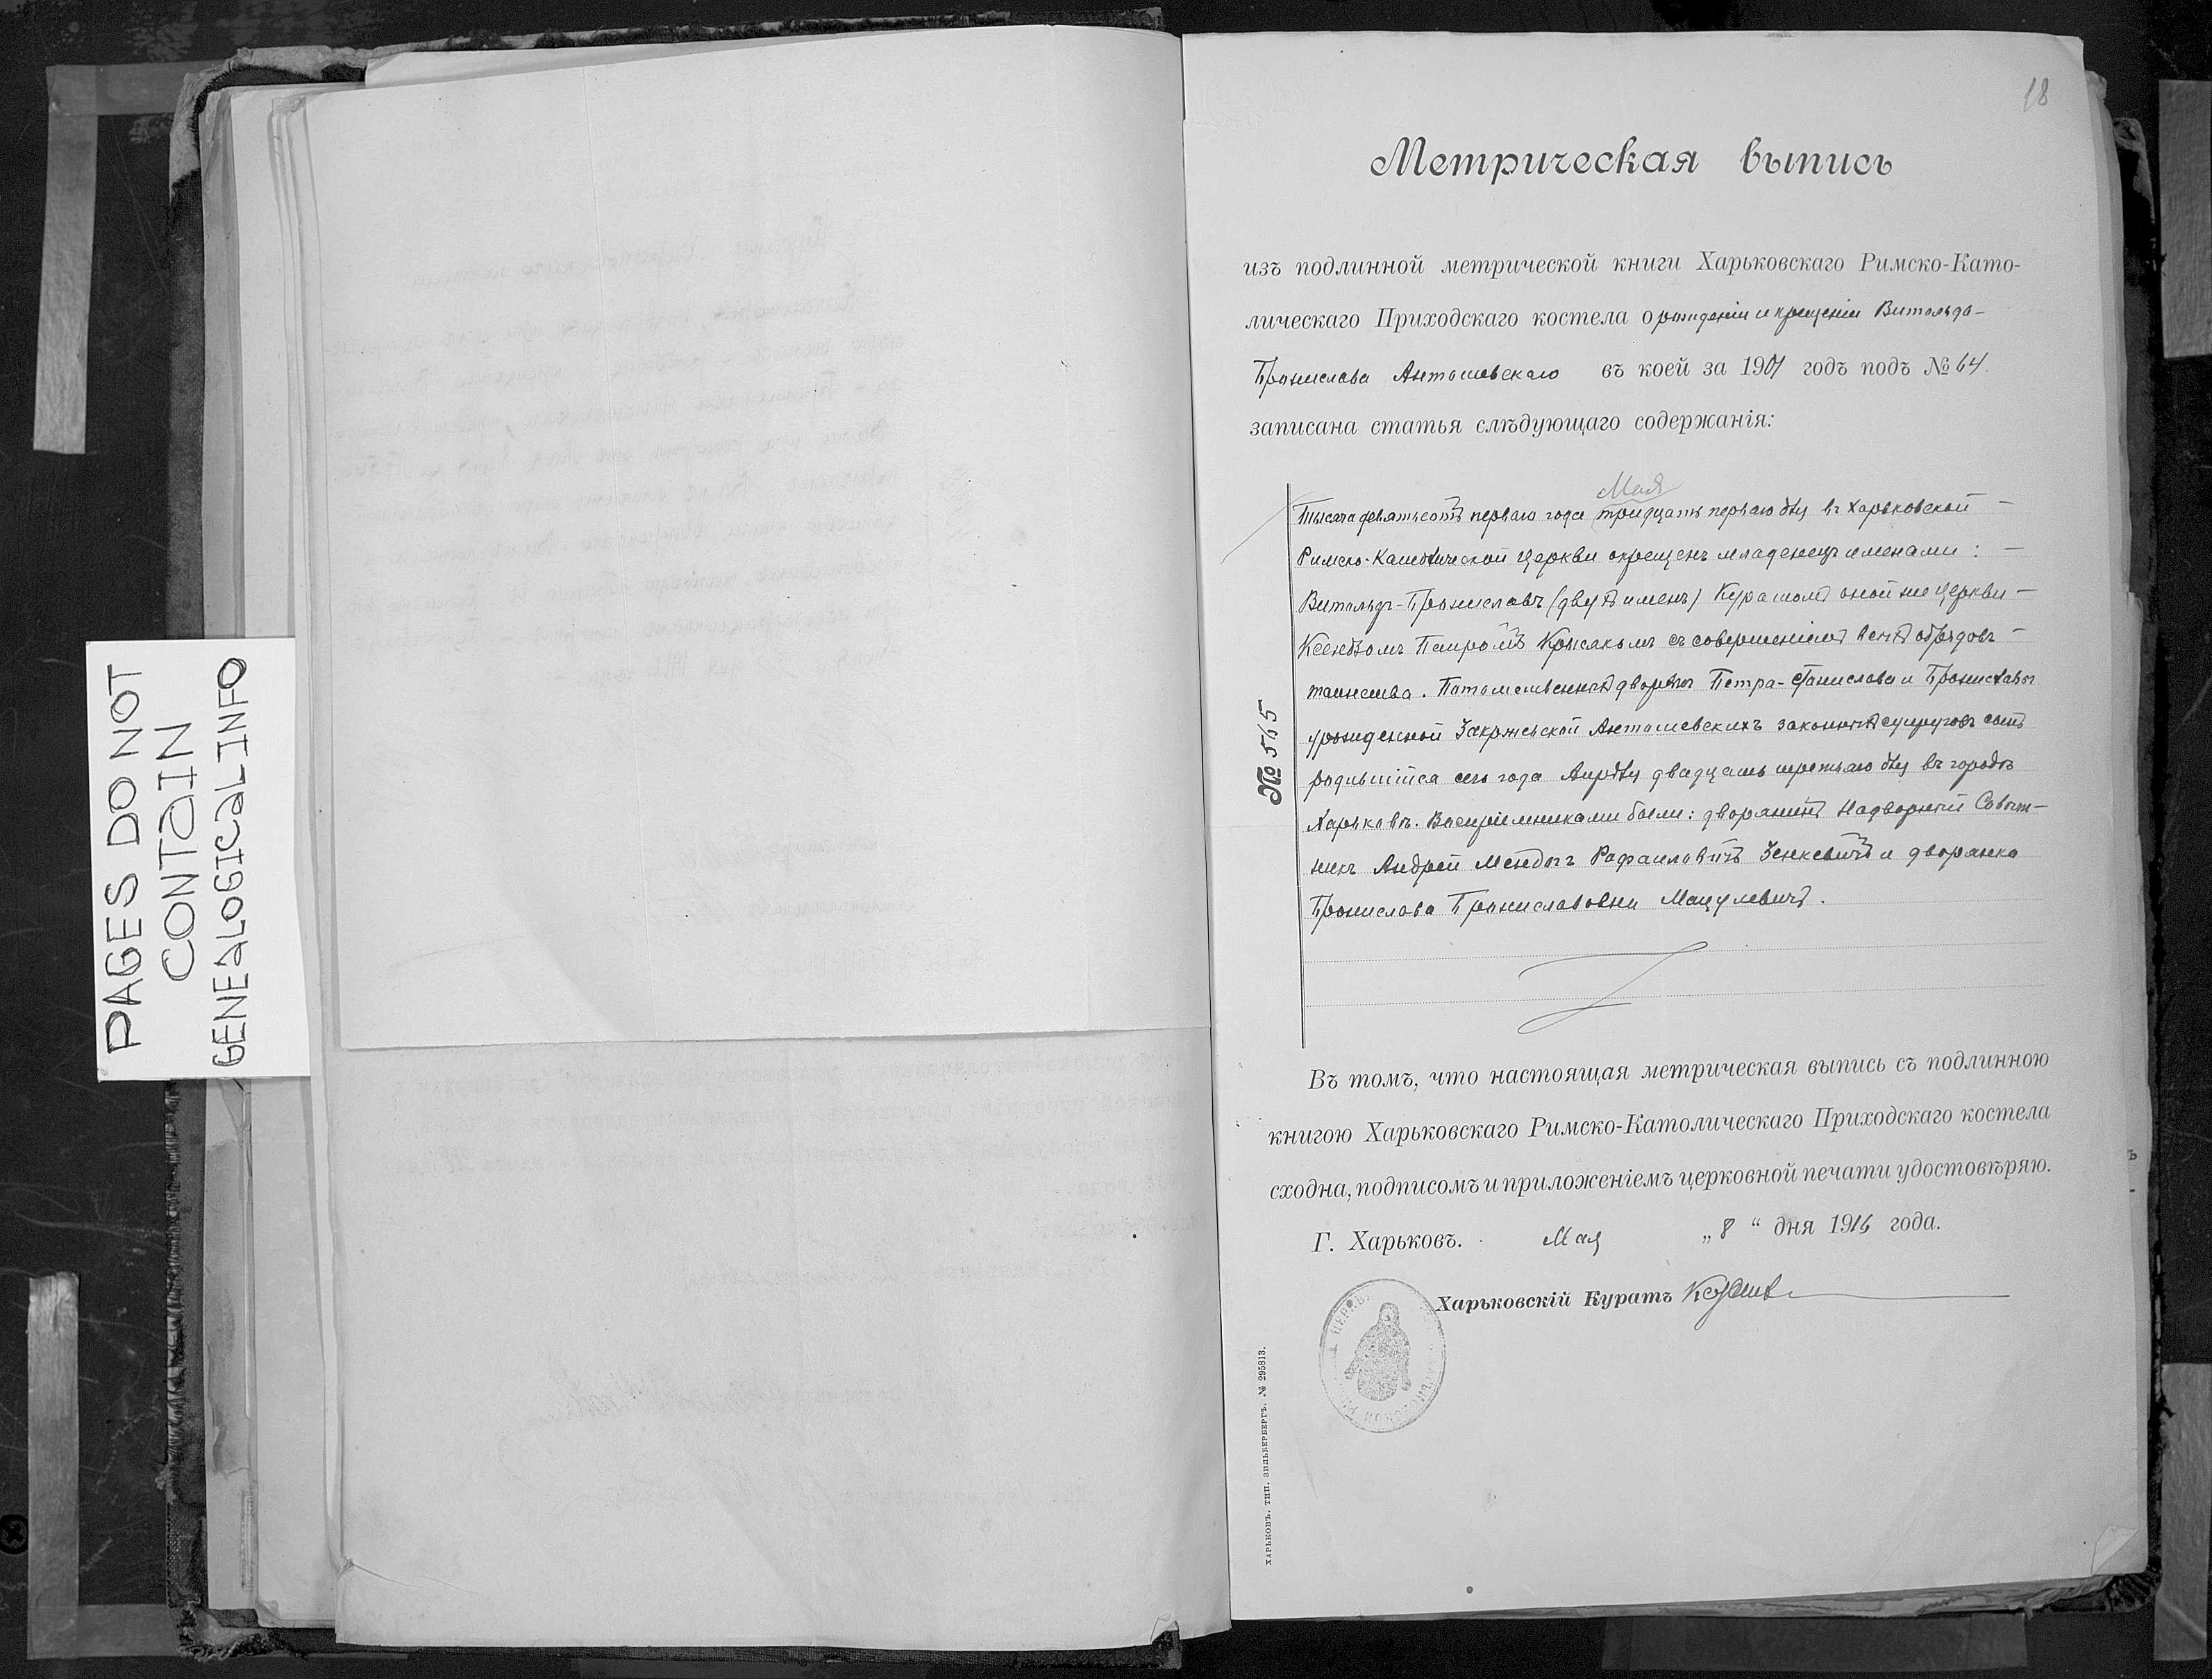 PAGES DO NOT
CONTAIN
GENEALOGICAL INFO
18
Метрическая выпись
изъ подлинной метрической книги Харьковскаго Римско-Като-
лическаго Приходскаго костела о рожденіи и крещеніи Витольда-
Бронислава Антошевскаго въ коей за 1901 годъ подъ № 64.
записана статья слѣдующаго содержанія:
Мая
Тысяча девятьсотъ перваго года тридцать перваго дня въ Харьковской –
Римско-Католической Церкви окрещенъ младенецъ именами: –
Витольдъ-Брониславъ (двухъ именъ) Куратомъ оной же церкви –
Ксендзомъ Петромъ Крысякомъ съ совершеніемъ всехъ обрядовъ –
таинства. Потомственныхъ дворянъ Петра-Станислава и Брониславы
урожденной Закржевской Антошевскихъ законныхъ супруговъ сынъ
родившійся сего года Апрѣля двадцать третьяго дня въ городѣ
Харьковѣ. Воспріемниками были: дворянинъ Надворный Совѣт–
никъ Андрей Рафаиловичъ Зенкевичъ и дворянка
Бронислава Брониславовна Мацулевичъ.
№ 565
Въ томъ, что настоящая метрическая выпись съ подлинною
книгою Харьковскаго Римско-Католическаго Приходскаго костела
сходна, подписомъ и приложеніемъ церковной печати удостовѣряю.
Г. Харьковъ. Мая „8“ дня 1916 года.
Харьковскій Куратъ
ХАРЬКОВЪ. ТИП. ЗИЛЬБЕРБЕРГЪ. № 295813.